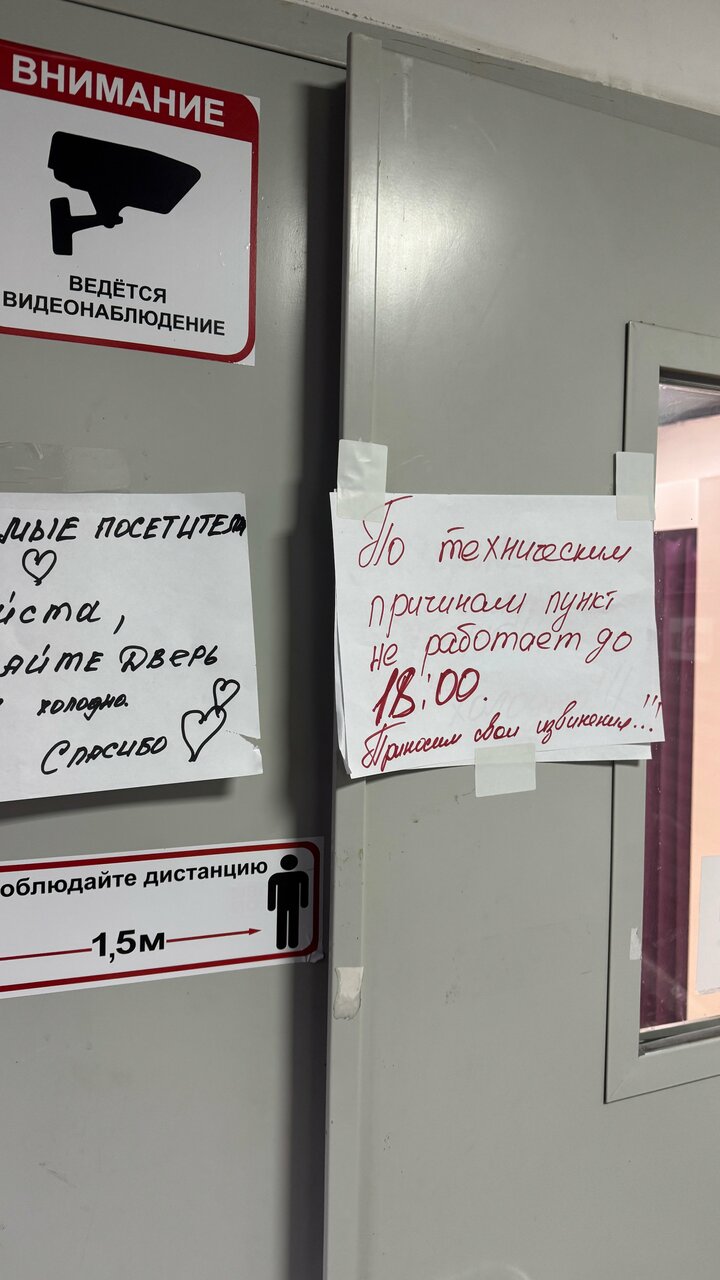 ВНИМАНИЕ
ВЕДЁТСЯ
ВИДЕОНАБЛЮДЕНИЕ
МЫЕ ПОСЕТИТЕЛИ
йста,
АЙТЕ ДВЕРЬ
холодно.
СПАСИБО
облюдайте дистанцию
1,5м
По техническим
причинам пункт
не работает до
18:00.
Приносим свои извинения...!!!